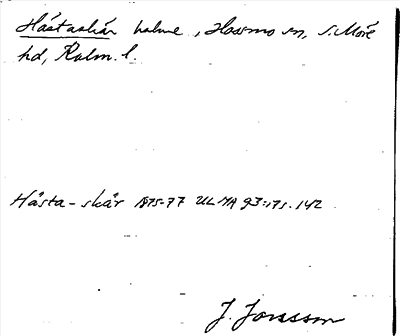 Hästaskär holme, Hossmo sn, S. Möre
hd, Kalm. l.
Hästa-skär 1875-77 ULMA 93:171. 142
J. Jonsson